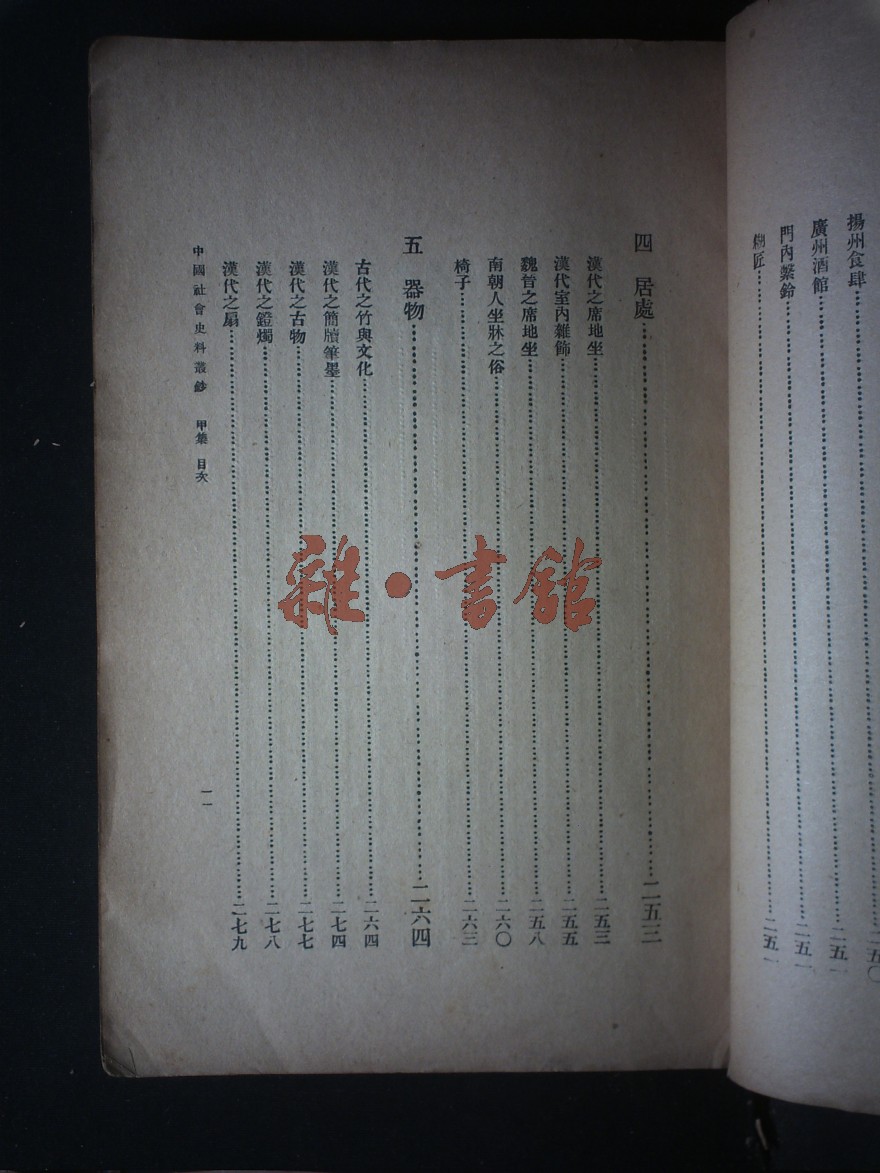 揚州食肆……二五〇
廣州酒館……二五一
門內繫鈴……二五一
糊匠……二五一
四 居處……二五三
漢代之席地坐……二五三
漢代室內雜飾……二五五
魏晉之席地坐……二五八
南朝人坐牀之俗……二六〇
椅子……二六三
五 器物……二六四
古代之竹與文化……二六四
漢代之簡牘筆墨……二七四
漢代之古物……二七七
漢代之鐙燭……二七八
漢代之扇……二七九
中國社會史料叢鈔 甲集 目次
一一
雜·書館